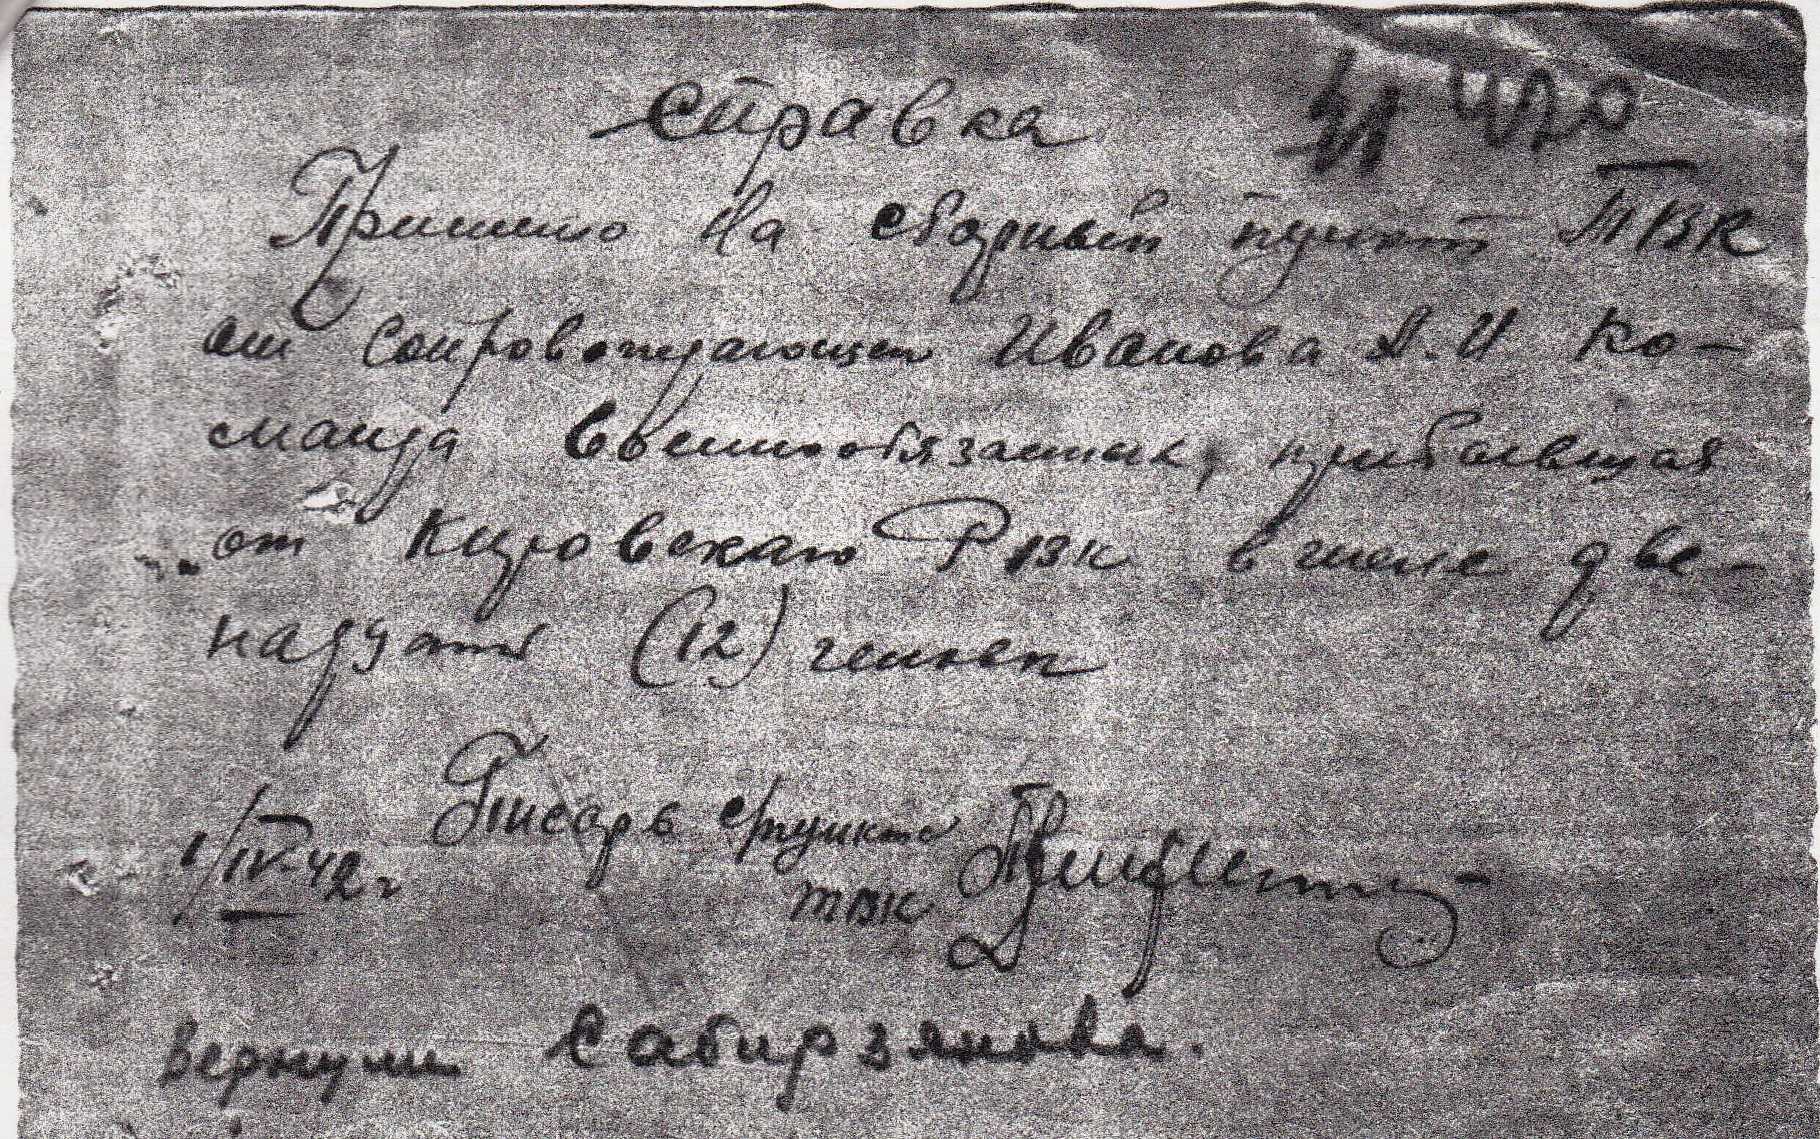 Справка
Принято на сборный пункт ТВК
от сопровождающего Иванова А.И ко-
манда военнообязаных, прибывшая
от Кировского РВК в числе две-
надцать (12) человек
Писарь с/пункта
1/IV-42г ТВК
Вернули Сабирзянова.